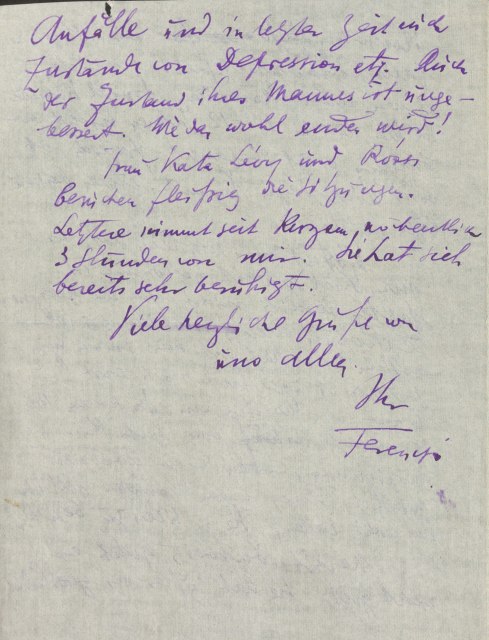 Anfälle und in letzter Zeit auch
Zustände von Depression etz. Auch
der Zustand ihres Mannes ist unge-
bessert. Wie das wohl enden wird!
Frau Kata Lévy und Rózsi
besuchen fleißig die Sitzungen.
Letztere nimmt seit Kurzem wöchentlich
3 Stunden von mir. Sie hat sich
bereits sehr beruhigt.
Viele herzliche Grüße von
uns allen.
Ihr
Ferenczi